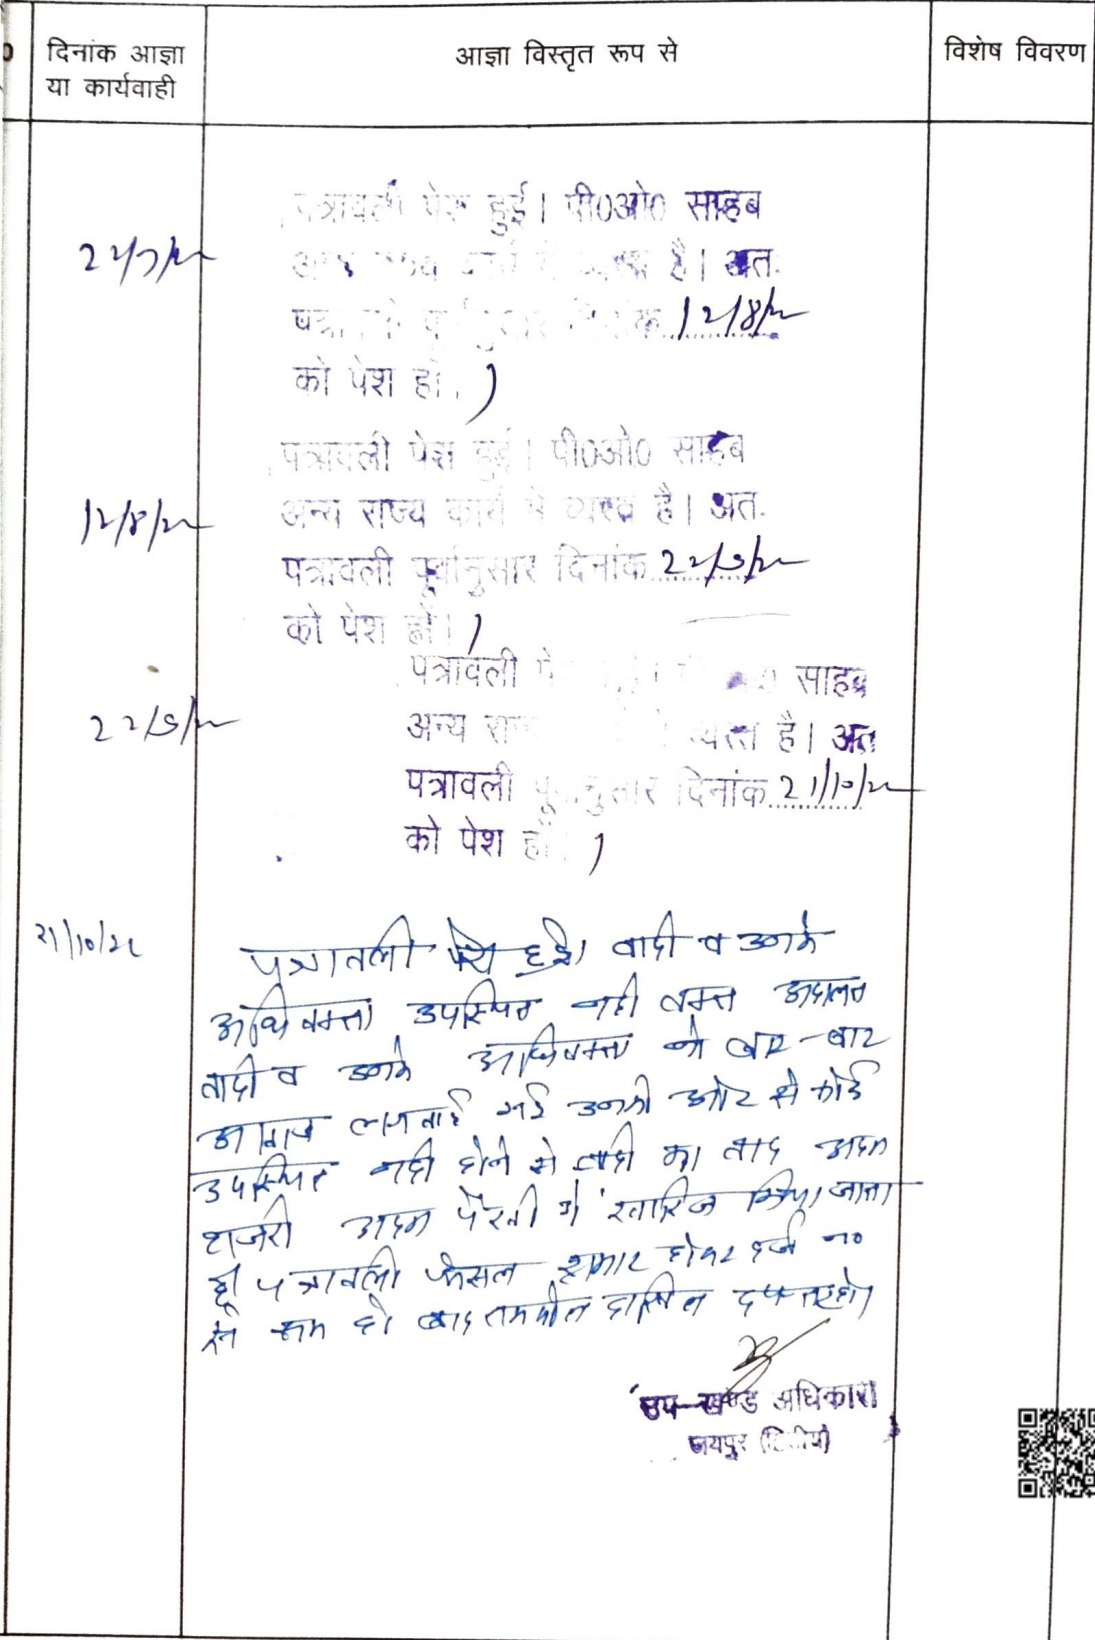 दिनांक आज्ञा
या कार्यवाही
आज्ञा विस्तृत रूप से
विशेष विवरण
पत्रावली पेश हुई। पी0ओ0 साहब
है। अत.
12/8/22
को पेश हो।
22/7/22
पत्रावली पेश हुई। पी0ओ0 साहब
अन्य राज्य कार्य में व्यस्त है। अत.
12/8/22
पत्रावली पूर्वानुसार दिनांक 22/9/22
को पेश हों।
पत्रावली साहब
22/9/22
अन्य व्यस्त है। अत
पत्रावली पूर्वानुसार दिनांक 21/10/22
को पेश हों
21/10/22
पत्रावली पेश हुई। वादी व उनके
अधिवक्ता उपस्थित नहीं वक्त अदालत
वादी व उनके अधिवक्ता को बार-बार
आवाज लगवाई गई उनकी ओर से कोई
उपस्थित नहीं होने से वादी का वाद अदम
हाजरी अदम पैरवी में खारिज किया जाता
है। पत्रावली फैसल शुमार होकर दर्ज न०
से कम हो बाद तकमील दाखिल दफ्तर हो।
उप-खण्ड अधिकारी
जयपुर (द्वितीय)